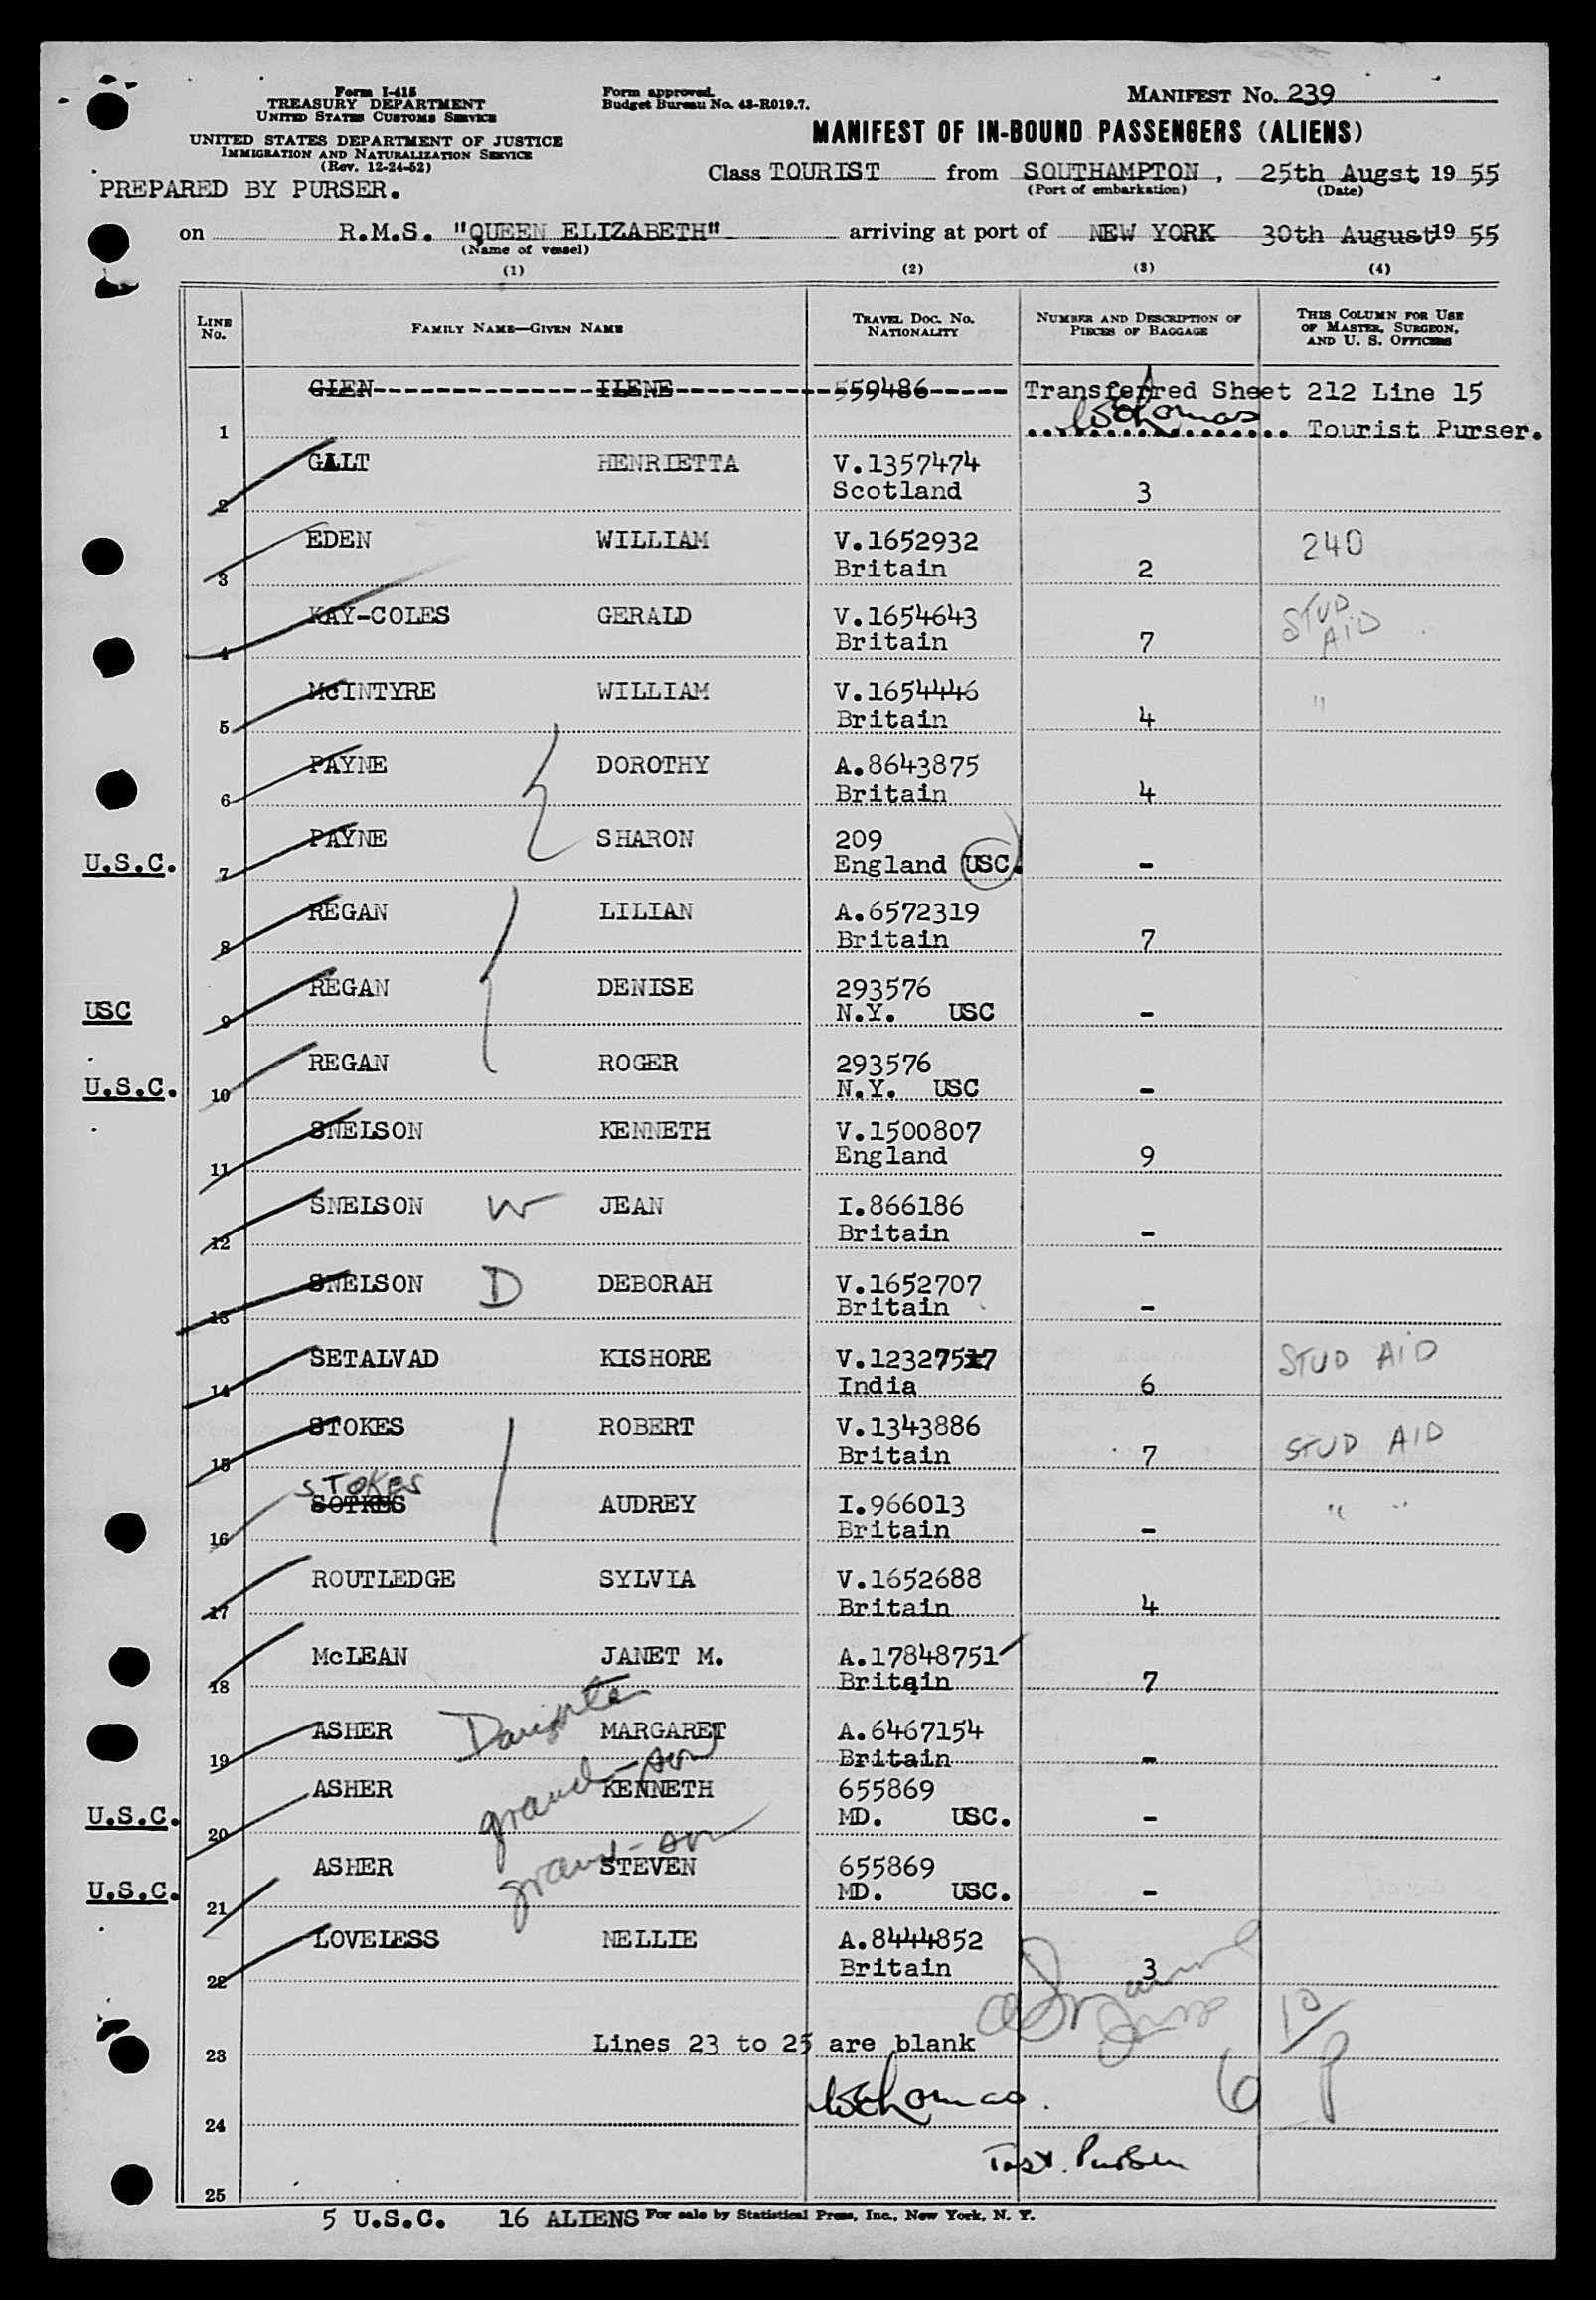 Form I-415
TREASURY DEPARTMENT
UNITED STATES CUSTOMS SERVICE
UNITED STATES DEPARTMENT OF JUSTICE
IMMIGRATION AND NATURALIZATION SERVICE
(Rev. 12-24-52)
PREPARED BY PURSER.
Form approved.
Budget Bureau No. 43-R019.7.
MANIFEST No. 239
MANIFEST OF IN-BOUND PASSENGERS (ALIENS)
Class TOURIST from SOUTHAMPTON, 25th Augst 19 55
(Port of embarkation) (Date)
on R.M.S. "QUEEN ELIZABETH" arriving at port of NEW YORK 30th August 19 55
(Name of vessel)
(1) (2) (3) (4)
LINE No. FAMILY NAME—GIVEN NAME TRAVEL DOC. NO. NATIONALITY NUMBER AND DESCRIPTION OF PIECES OF BAGGAGE THIS COLUMN FOR USE OF MASTER, SURGEON, AND U. S. OFFICERS
GIEN ILENE 559486 Transferred Sheet 212 Line 15
1 WEThomas Tourist Purser.
GALT HENRIETTA V.1357474
2 Scotland 3
EDEN WILLIAM V.1652932 240
3 Britain 2
KAY-COLES GERALD V.1654643 STUD AID
4 Britain 7
McINTYRE WILLIAM V.1654446 "
5 Britain 4
PAYNE DOROTHY A.8643875
6 Britain 4
PAYNE SHARON 209
U.S.C. 7 England USC. -
REGAN LILIAN A.6572319
8 Britain 7
REGAN DENISE 293576
USC 9 N.Y. USC -
REGAN ROGER 293576
U.S.C. 10 N.Y. USC -
SNELSON KENNETH V.1500807
11 England 9
SNELSON W JEAN I.866186
12 Britain -
SNELSON D DEBORAH V.1652707
13 Britain -
SETALVAD KISHORE V.12327517 STUD AID
14 India 6
STOKES ROBERT V.1343886
15 Britain 7 STUD AID
STOKES
SOTKES AUDREY I.966013 " "
16 Britain -
ROUTLEDGE SYLVIA V.1652688
17 Britain 4
McLEAN JANET M. A.17848751
18 Britain 7
ASHER Daughter MARGARET A.6467154
19 Britain -
ASHER grand-son KENNETH 655869
U.S.C. 20 MD. USC. -
ASHER grand-son STEVEN 655869
U.S.C. 21 MD. USC. -
LOVELESS NELLIE A.8444852
22 Britain 3
10
23 Lines 23 to 25 are blank
WEThomas. 6 9
24
Tost. Purser
25
5 U.S.C. 16 ALIENS For sale by Statistical Press, Inc., New York, N. Y.